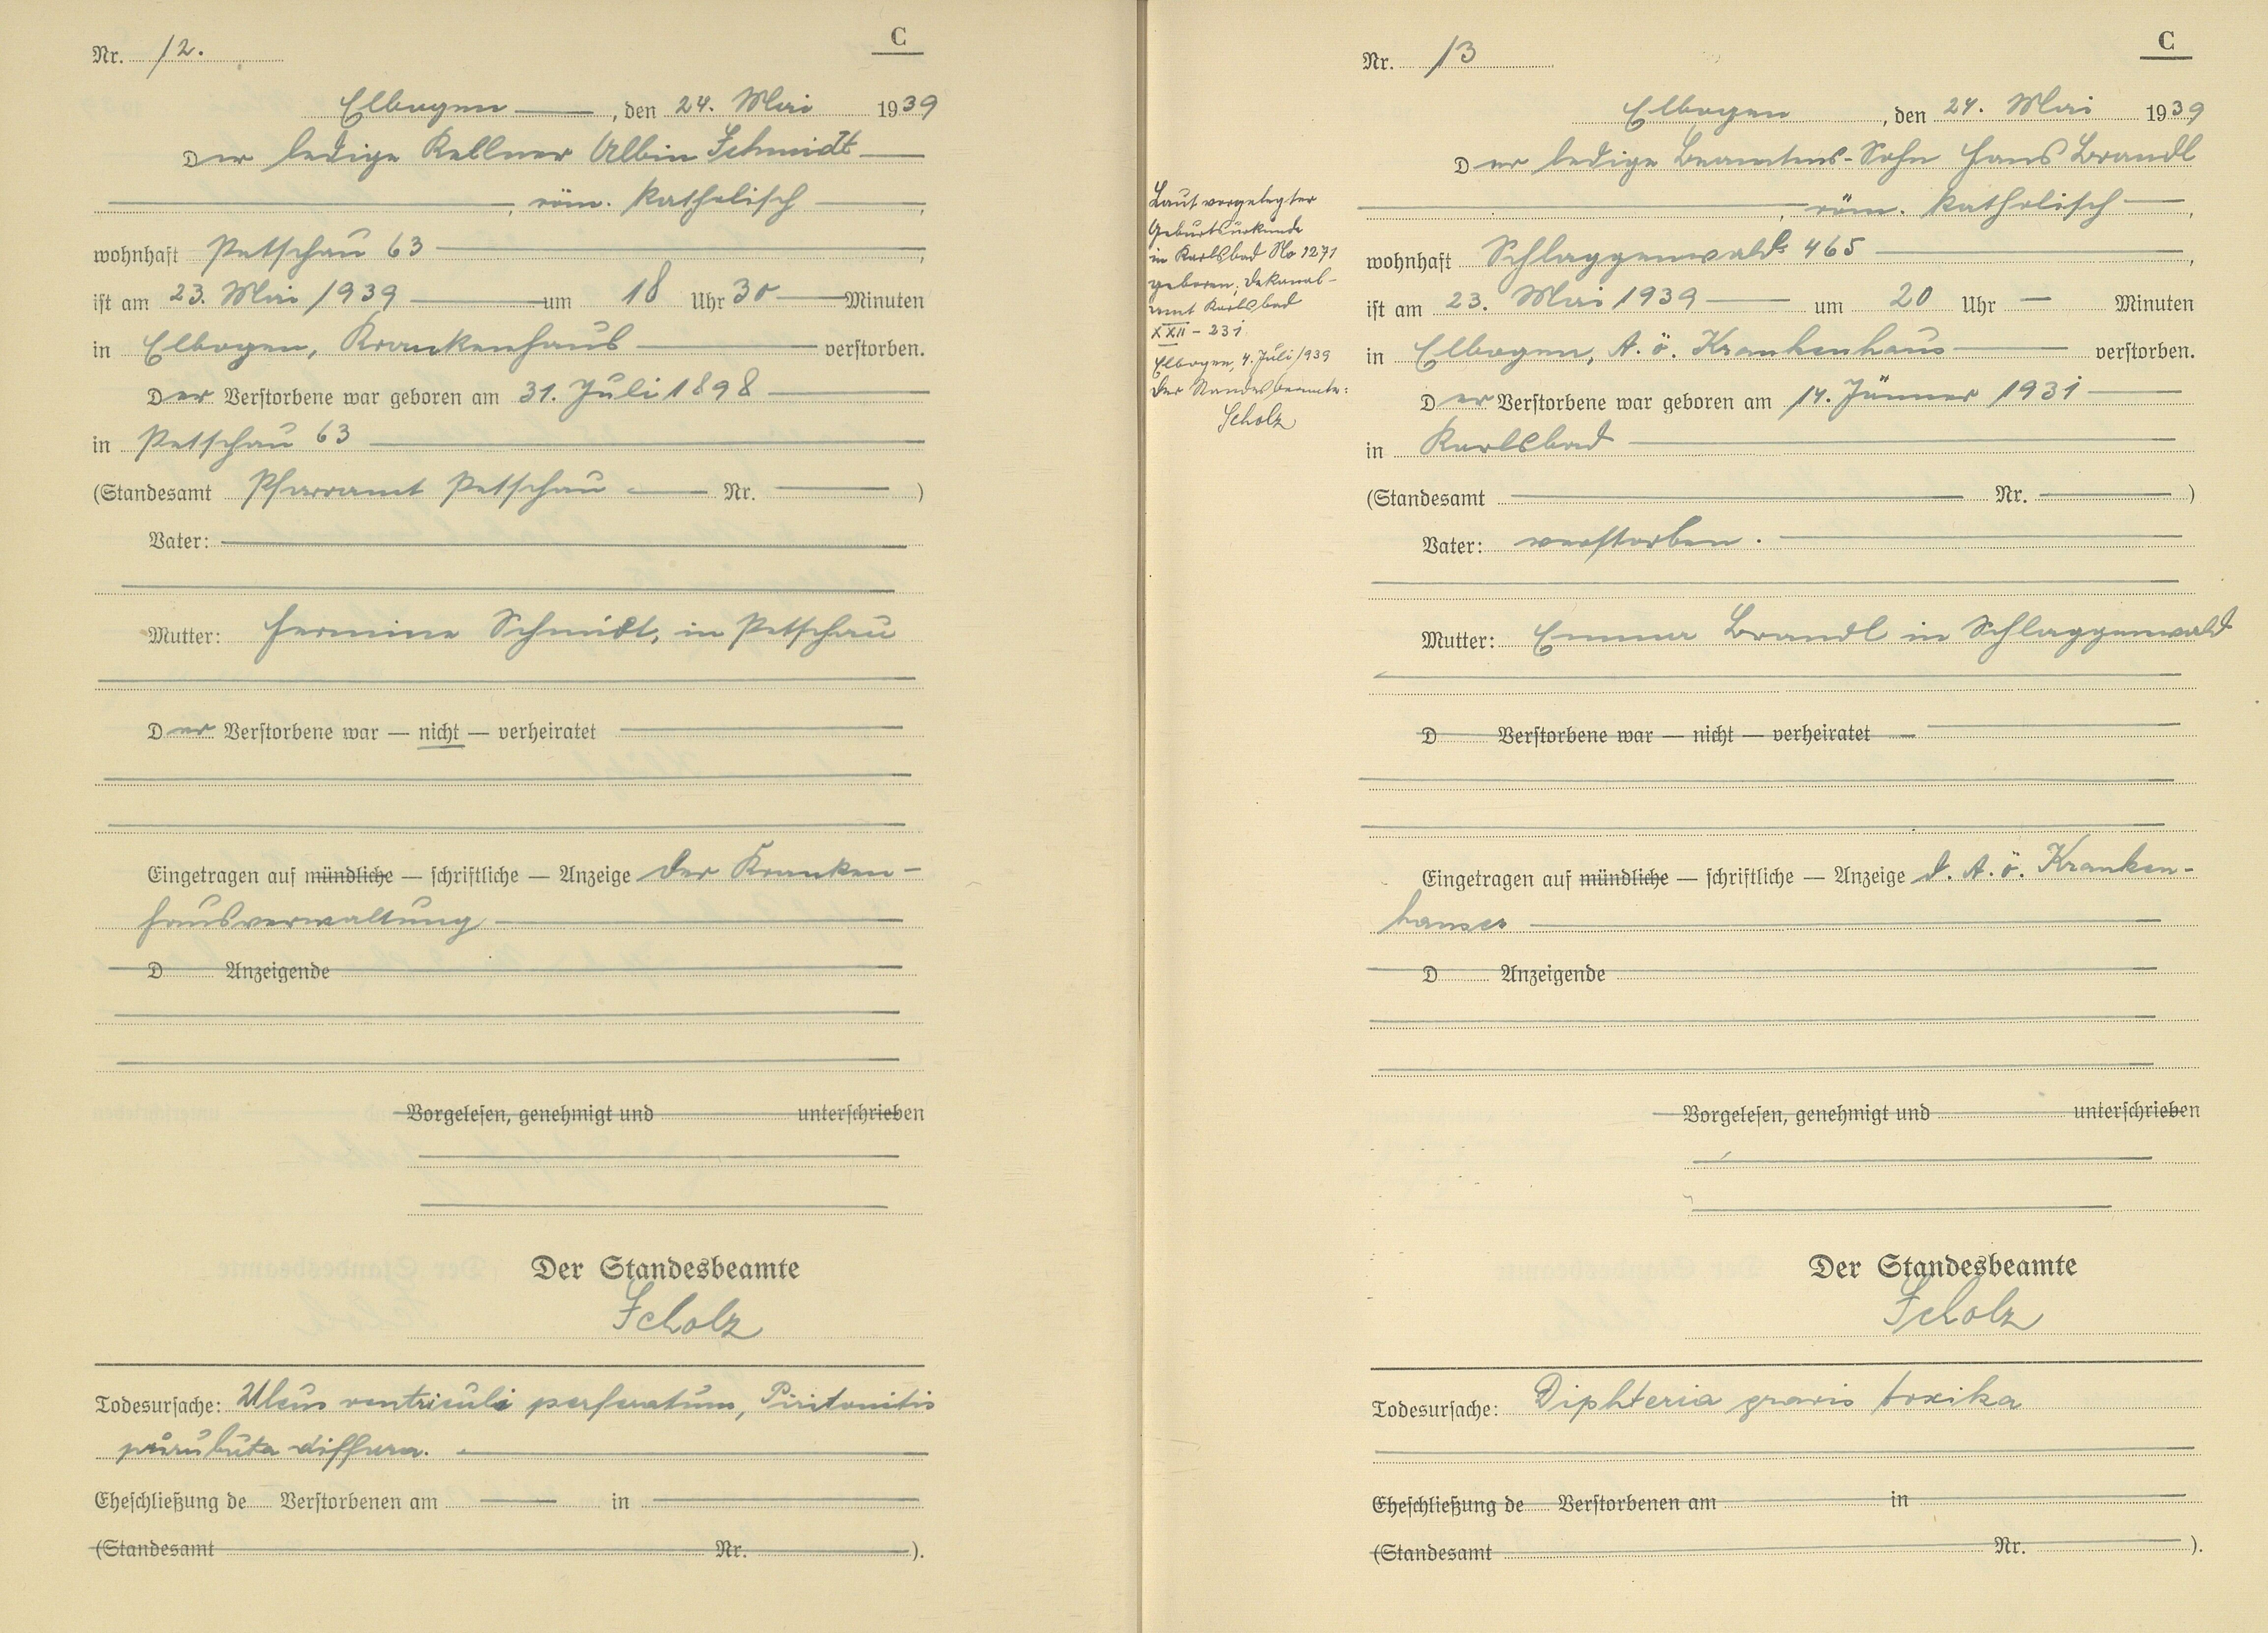 Nr. 12.
C
Elbogen, den 24. Mai 1939
Der ledige Kellner Albin Schmidt
, röm. katholisch,
wohnhaft Petschau 63,
ist am 23. Mai 1939 um 18 Uhr 30 Minuten
in Elbogen, Krankenhaus verstorben.
Der Verstorbene war geboren am 31. Juli 1898
in Petschau 63
(Standesamt Pfarramt Petschau — Nr. — )
Vater: —
Mutter: Hermine Schmidt, in Petschau
Der Verstorbene war — nicht — verheiratet
Eingetragen auf mündliche — schriftliche — Anzeige der Kranken-
hausverwaltung
D Anzeigende
Vorgelesen, genehmigt und unterschrieben
Der Standesbeamte
Scholz
Todesursache: Ulcus ventriculi perforatum, Piritonitis
diffusa.
Eheschließung de Verstorbenen am — in —
(Standesamt Nr. ).
Nr. 13
C
Elbogen, den 24. Mai 1939
Der ledige Beamtens-Sohn Hans Brandl
, röm. katholisch,
wohnhaft Schlaggenwald 465,
ist am 23. Mai 1939 um 20 Uhr — Minuten
in Elbogen, A. ö. Krankenhaus verstorben.
Der Verstorbene war geboren am 14. Jänner 1931
in Karlsbad
(Standesamt — Nr. — )
Vater: verstorben.
Mutter: Emma Brandl in Schlaggenwald
D Verstorbene war — nicht — verheiratet
Eingetragen auf mündliche — schriftliche — Anzeige d. A. ö. Kranken-
hauses
D Anzeigende
Vorgelesen, genehmigt und unterschrieben
Der Standesbeamte
Scholz
Todesursache: Diphteria gravis toxika
Eheschließung de Verstorbenen am in
(Standesamt Nr. ).
Laut vorgelegter
Geburtsurkunde
in Karlsbad No 1271
geboren; Dekanal-
amt Karlsbad
XXII - 231
Elbogen, 4. Juli 1939
Der Standesbeamte:
Scholz